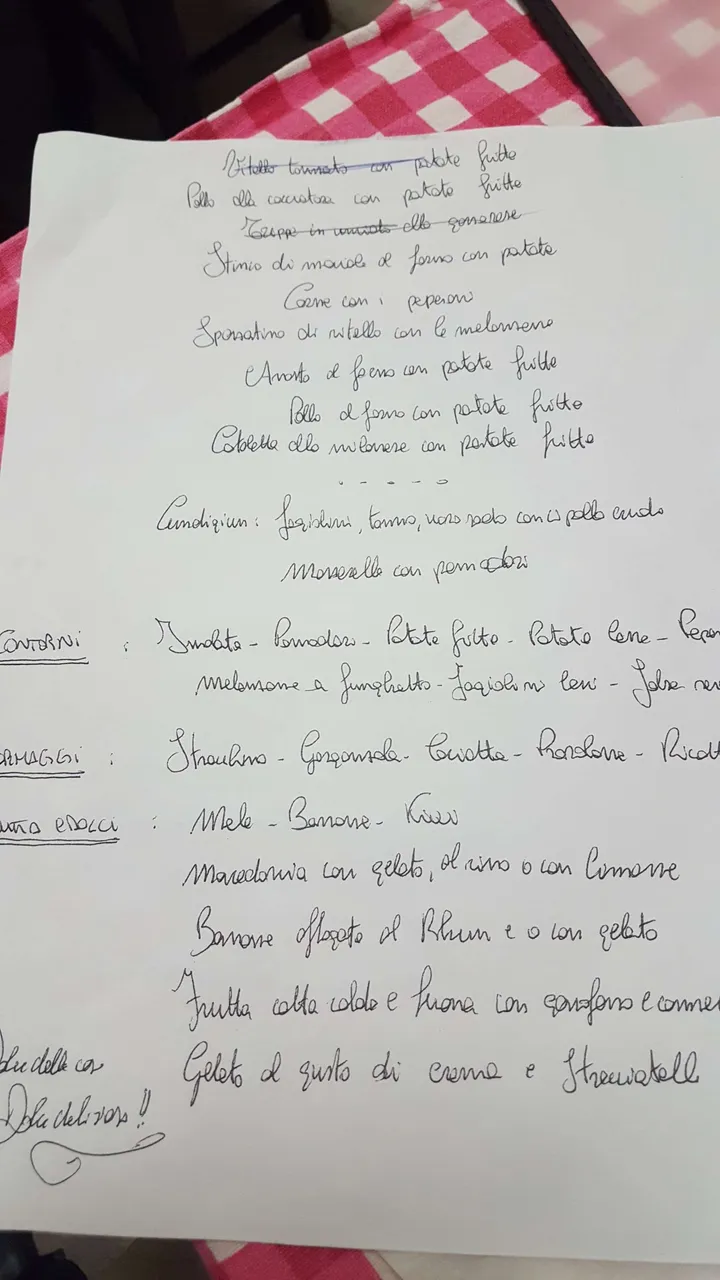 Vitello tonnato con patate fritte
Pollo alla cacciatora con patate fritte
Trippe in umido alla genovese
Stinco di maiale al forno con patate
Carne con i peperoni
Spezzatino di vitello con le melanzane
Arrosto al forno con patate fritte
Pollo al forno con patate fritte
Cotoletta alla milanese con patate fritte
Cundigiun: fagiolini, tonno, uovo sodo con cipolla cruda
Mozzarella con pomodori
CONTORNI : Insalata - Pomodori - Patate fritte - Patate lesse - Pepe
Melanzane a funghetto - Fagiolini lessi - Salse
ORMAGGI : Stracchino - Gorgonzola - Caciotta - Provolone - Ricott
UTTA E DOLCI : Mele - Banane - Kiwi
Macedonia con gelato, al vino o con limone
Banane affogate al Rhum e o con gelato
Frutta cotta calda e fuma con garofano e canne
Gelato al gusto di crema e Stracciatell
della ca
!!